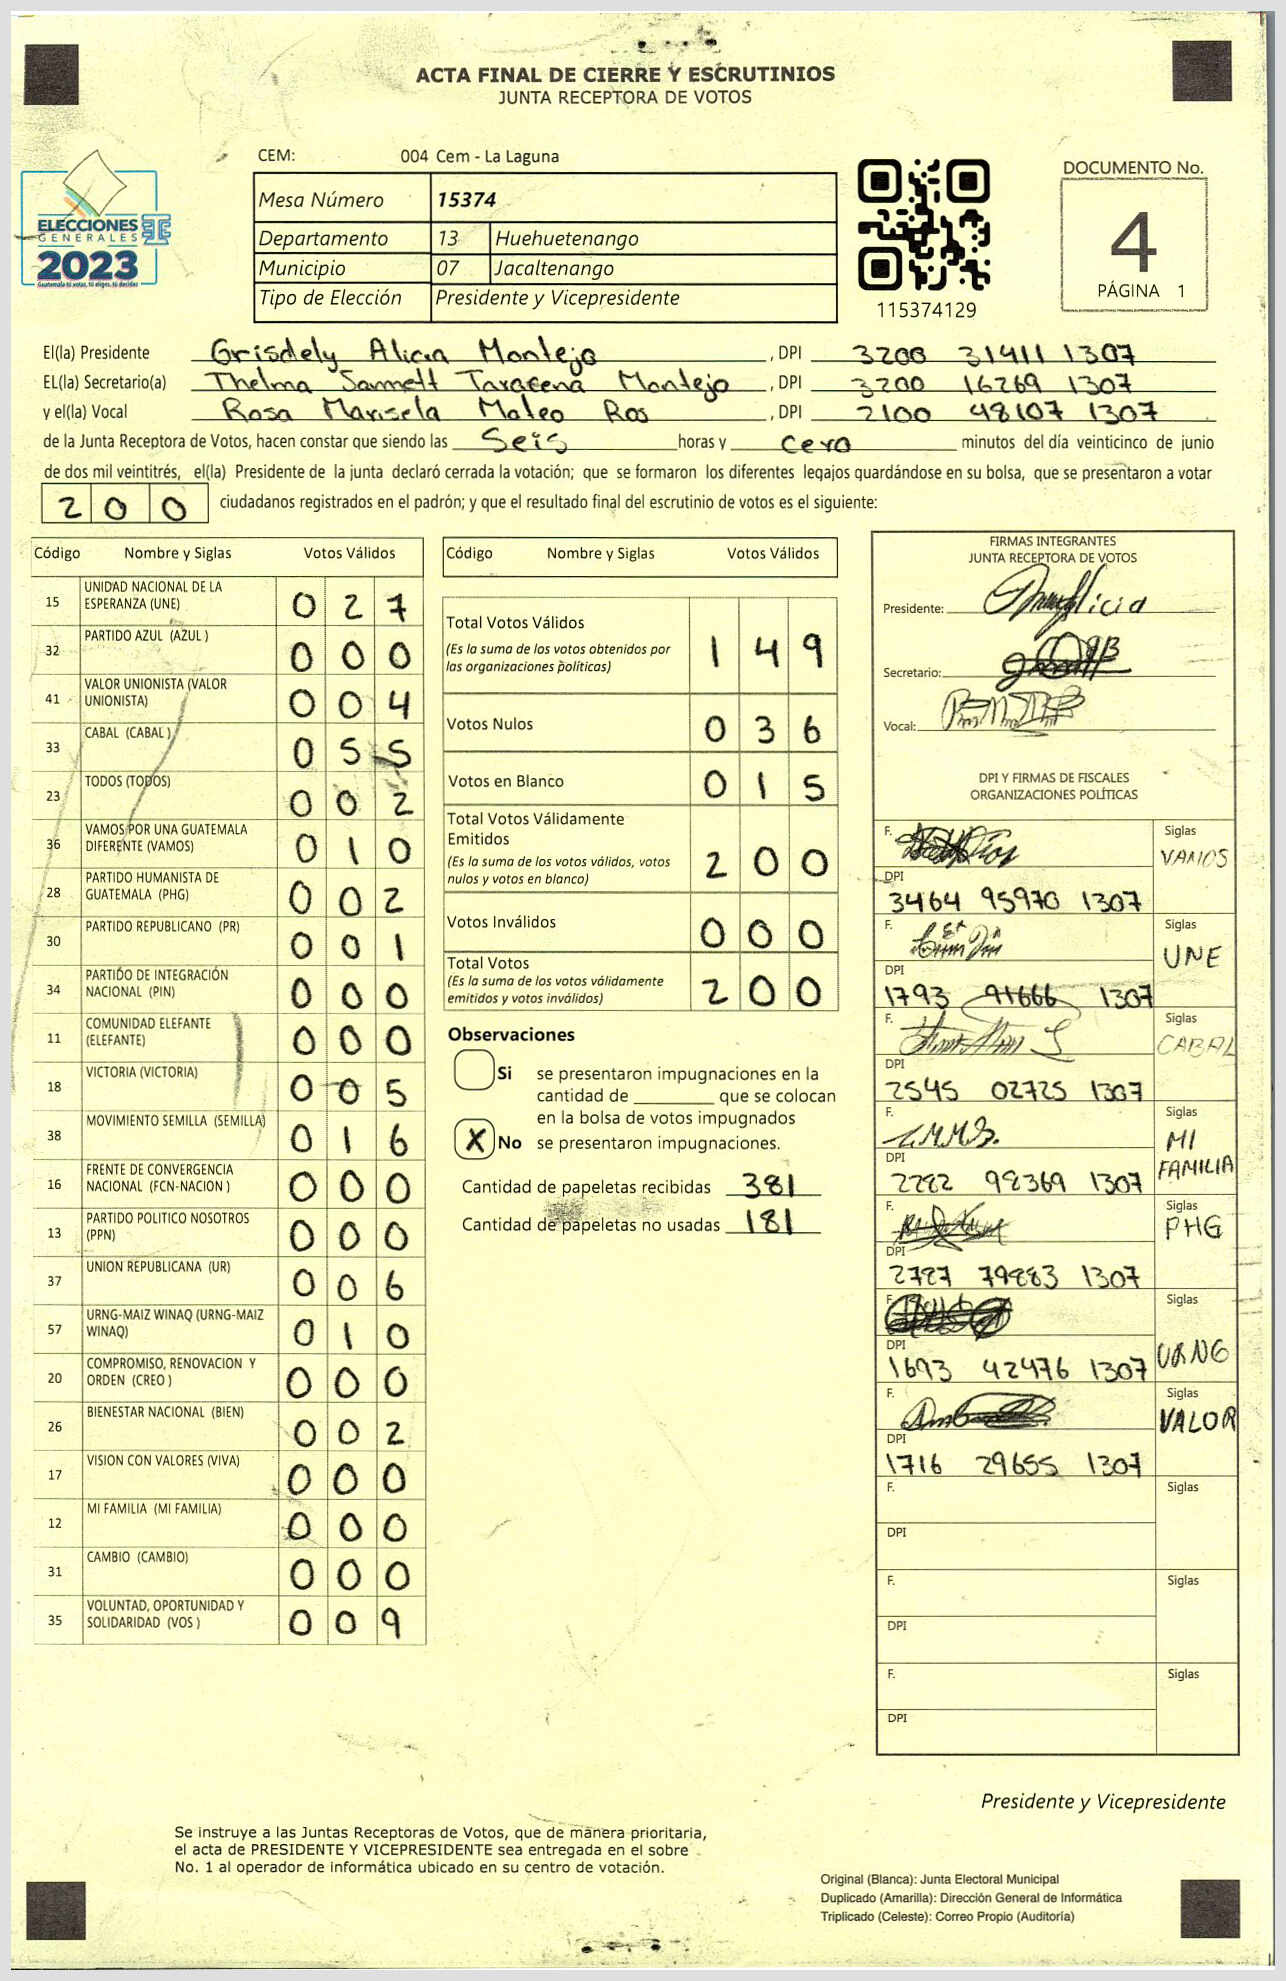 ACTA FINAL DE CIERRE Y ESCRUTINIOS
JUNTA RECEPTORA DE VOTOS
CEM: 004 Cem - La Laguna
Mesa Número 15374
Departamento 13 Huehuetenango
Municipio 07 Jacaltenango
Tipo de Elección Presidente y Vicepresidente
ELECCIONES
GENERALES
2023
Guatemala tú votas, tú eliges, tú decides
115374129
DOCUMENTO No.
4
PÁGINA 1
El(la) Presidente Grisdely Alicia Montejo, DPI 3200 31411 1307
EL(la) Secretario(a) Thelma Sannett Taracena Montejo, DPI 3200 16269 1307
y el(la) Vocal Rosa Marisela Mateo Ros, DPI 2100 48107 1307
de la Junta Receptora de Votos, hacen constar que siendo las Seis horas y cero minutos del día veinticinco de junio
de dos mil veintitrés, el(la) Presidente de la junta declaró cerrada la votación; que se formaron los diferentes legajos guardándose en su bolsa, que se presentaron a votar
200 ciudadanos registrados en el padrón; y que el resultado final del escrutinio de votos es el siguiente:
Código Nombre y Siglas Votos Válidos
15 UNIDAD NACIONAL DE LA ESPERANZA (UNE) 027
32 PARTIDO AZUL (AZUL ) 000
41 VALOR UNIONISTA (VALOR UNIONISTA) 004
33 CABAL (CABAL ) 055
23 TODOS (TODOS) 002
36 VAMOS POR UNA GUATEMALA DIFERENTE (VAMOS) 010
28 PARTIDO HUMANISTA DE GUATEMALA (PHG) 002
30 PARTIDO REPUBLICANO (PR) 001
34 PARTIDO DE INTEGRACIÓN NACIONAL (PIN) 000
11 COMUNIDAD ELEFANTE (ELEFANTE) 000
18 VICTORIA (VICTORIA) 005
38 MOVIMIENTO SEMILLA (SEMILLA) 016
16 FRENTE DE CONVERGENCIA NACIONAL (FCN-NACION ) 000
13 PARTIDO POLITICO NOSOTROS (PPN) 000
37 UNION REPUBLICANA (UR) 006
57 URNG-MAIZ WINAQ (URNG-MAIZ WINAQ) 010
20 COMPROMISO, RENOVACION Y ORDEN (CREO ) 000
26 BIENESTAR NACIONAL (BIEN) 002
17 VISION CON VALORES (VIVA) 000
12 MI FAMILIA (MI FAMILIA) 000
31 CAMBIO (CAMBIO) 000
35 VOLUNTAD, OPORTUNIDAD Y SOLIDARIDAD (VOS ) 009
Código Nombre y Siglas Votos Válidos
Total Votos Válidos 149
(Es la suma de los votos obtenidos por
las organizaciones políticas)
Votos Nulos 036
Votos en Blanco 015
Total Votos Válidamente
Emitidos 200
(Es la suma de los votos válidos, votos
nulos y votos en blanco)
Votos Inválidos 000
Total Votos 200
(Es la suma de los votos válidamente
emitidos y votos inválidos)
Observaciones
Si se presentaron impugnaciones en la
cantidad de ________ que se colocan
en la bolsa de votos impugnados
X No se presentaron impugnaciones.
Cantidad de papeletas recibidas 381
Cantidad de papeletas no usadas 181
FIRMAS INTEGRANTES
JUNTA RECEPTORA DE VOTOS
Presidente:
Secretario:
Vocal:
DPI Y FIRMAS DE FISCALES
ORGANIZACIONES POLÍTICAS
F. Siglas VAMOS
DPI 3464 95970 1307
F. Siglas UNE
DPI 1793 91666 1307
F. Siglas CABAL
DPI 2545 02725 1307
F. Siglas MI FAMILIA
DPI 2282 98369 1307
F. Siglas PHG
DPI 2787 79883 1307
F. Siglas URNG
DPI 1693 42476 1307
F. Siglas VALOR
DPI 1716 29655 1307
F. Siglas
DPI
F. Siglas
DPI
F. Siglas
DPI
Presidente y Vicepresidente
Se instruye a las Juntas Receptoras de Votos, que de manera prioritaria,
el acta de PRESIDENTE Y VICEPRESIDENTE sea entregada en el sobre
No. 1 al operador de informática ubicado en su centro de votación.
Original (Blanca): Junta Electoral Municipal
Duplicado (Amarilla): Dirección General de Informática
Triplicado (Celeste): Correo Propio (Auditoría)